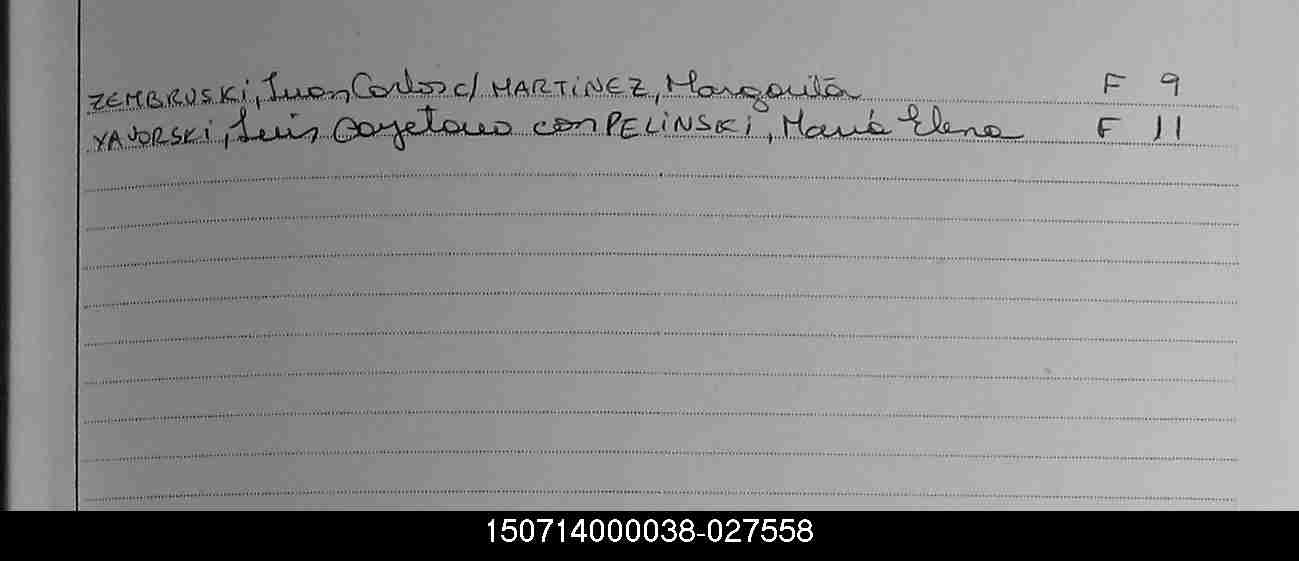 ZEMBRUSKI, Juan Carlos c/ MARTINEZ, Margarita F 9
YAVORSKI, Luis Cayetano con PELINSKI, María Elena F 11
150714000038-027558